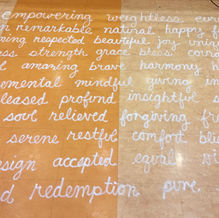 empowering weightless
remarkable natural happy
respected beautiful joy
strength grace bless
amazing brave harmony
mindful giving
profund insightful
soul relieved forgiving
serene restful comfort
accepted equal
redemption pure